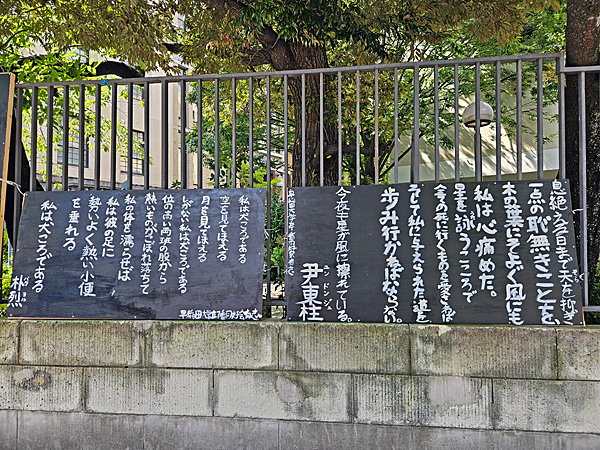 息絶える日まで天を仰ぎ
一点の恥無きことを、
木の葉にそよぐ風にも
私は心痛めた。
星を詠うこころで
全ての死に行くものを愛さねば
そして私に与えられた道を
歩み行かねばならない。
今夜も星が風に擦れている。
尹東柱
ユン ドンジュ
私は犬ころである
空を見てほえる
月を見てほえる
しがない私は犬ころである
位の高い両班の股から
熱いものがこぼれ落ちて
私の体を濡らせば
私は彼の足に
勢いよく熱い小便
を垂れる
私は犬ころである
朴烈